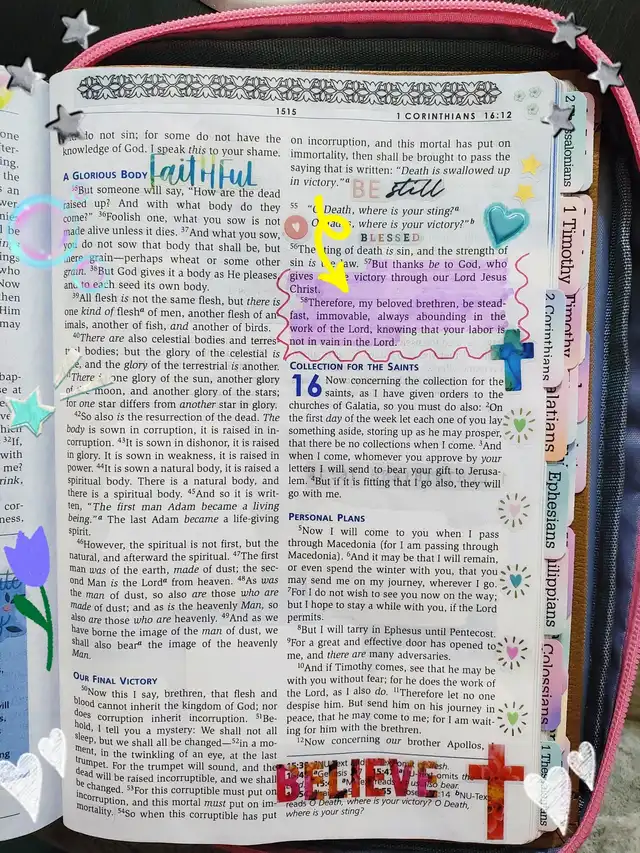 1515
1 CORINTHIANS 16:12
do not sin; for some do not have the
knowledge of God. I speak this to your shame.
A GLORIOUS BODY
FAITHFUL
35But someone will say, "How are the dead
raised up? And with what body do they
come?" 36Foolish one, what you sow is not
made alive unless it dies. 37And what you sow,
you do not sow that body that shall be, but
mere grain—perhaps wheat or some other
grain. 38But God gives it a body as He pleases,
and to each seed its own body.
39All flesh is not the same flesh, but there is
one kind of fleshᵃ of men, another flesh of an-
imals, another of fish, and another of birds.
40There are also celestial bodies and terres-
bodies; but the glory of the celestial is
and the glory of the terrestrial is another.
41There is one glory of the sun, another glory
of the moon, and another glory of the stars;
for one star differs from another star in glory.
42So also is the resurrection of the dead. The
body is sown in corruption, it is raised in in-
corruption. 43It is sown in dishonor, it is raised
in glory. It is sown in weakness, it is raised in
power. 44It is sown a natural body, it is raised a
spiritual body. There is a natural body, and
there is a spiritual body. 45And so it is writ-
ten, "The first man Adam became a living
being."ᵃ The last Adam became a life-giving
spirit.
46However, the spiritual is not first, but the
natural, and afterward the spiritual. 47The first
man was of the earth, made of dust; the sec-
ond Man is the Lordᵃ from heaven. 48As was
the man of dust, so also are those who are
made of dust; and as is the heavenly Man, so
also are those who are heavenly. 49And as we
have borne the image of the man of dust, we
shall also bearᵃ the image of the heavenly
Man.
OUR FINAL VICTORY
50Now this I say, brethren, that flesh and
blood cannot inherit the kingdom of God; nor
does corruption inherit incorruption. 51Be-
hold, I tell you a mystery: We shall not all
sleep, but we shall all be changed—52in a mo-
ment, in the twinkling of an eye, at the last
trumpet. For the trumpet will sound, and the
dead will be raised incorruptible, and we shall
be changed. 53For this corruptible must put on
incorruption, and this mortal must put on im-
mortality. 54So when this corruptible has put
on incorruption, and this mortal has put on
immortality, then shall be brought to pass the
saying that is written: "Death is swallowed up
in victory."ᵃ
BE still
55 "O Death, where is your sting?ᵃ
O where is your victory?"ᵇ
BLESSED
56The sting of death is sin, and the strength of
sin is the law. 57But thanks be to God, who
gives victory through our Lord Jesus
Christ.
58Therefore, my beloved brethren, be stead-
fast, immovable, always abounding in the
work of the Lord, knowing that your labor is
not in vain in the Lord.
COLLECTION FOR THE SAINTS
16 Now concerning the collection for the
saints, as I have given orders to the
churches of Galatia, so you must do also: 2On
the first day of the week let each one of you lay
something aside, storing up as he may prosper,
that there be no collections when I come. 3And
when I come, whomever you approve by your
letters I will send to bear your gift to Jerusa-
lem. 4But if it is fitting that I go also, they will
go with me.
PERSONAL PLANS
5Now I will come to you when I pass
through Macedonia (for I am passing through
Macedonia). 6And it may be that I will remain,
or even spend the winter with you, that you
may send me on my journey, wherever I go.
7For I do not wish to see you now on the way;
but I hope to stay a while with you, if the Lord
permits.
8But I will tarry in Ephesus until Pentecost.
9For a great and effective door has opened to
me, and there are many adversaries.
10And if Timothy comes, see that he may be
with you without fear; for he does the work of
the Lord, as I also do. 11Therefore let no one
despise him. But send him on his journey in
peace, that he may come to me; for I am wait-
ing for him with the brethren.
12Now concerning our brother Apollos,
BELIEVE
reads O Death, where is your victory? O Death,
where is your sting?
1 Timothy
Timothy
2 Corinthians
Ephesians
Colossians